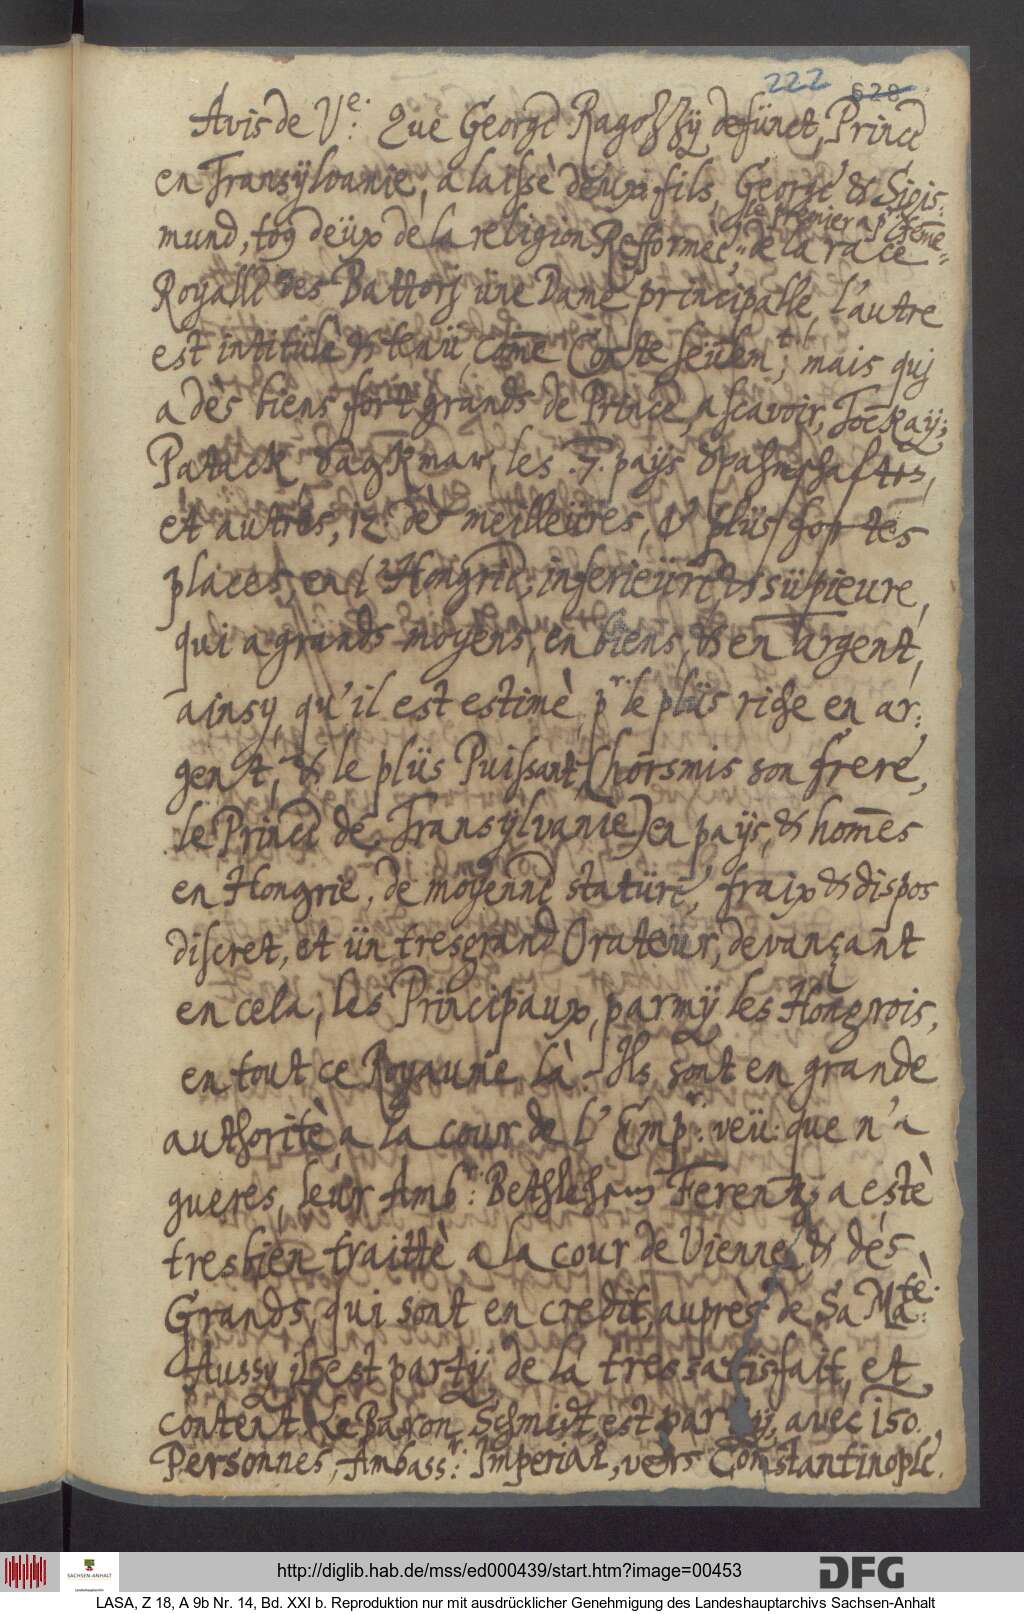 222 628
Avis de Ve: Que George Ragozzÿ defünct, Prince
en Transÿlvanie, a laissè deüx fils, George & Sigis:
le premier a pr feme
mund, to9 deüx de la religion Refformèe, de la race
Royalle des Battorj üne Dame principalle, l'autre
est intitülè & tenü, come Comte seülemt; mais quj
a dès biens fort grands de Prince, ascavoir, Tockaÿ,
Patack, Sackmar, les .7. paÿs Spahnschaften,
et autres, 12 des meilleüres, & plüs fortes
places, en l'Hongrie, inferieüre & süpieure,
qui a grands moyens, en biens, & en argent,
ainsy, qu'il est estimè pr. le plüs riche en ar:
gent, & le plüs Puissant, (horsmis son frere,
le Prince de Transÿlvanie) en païs, & homes
en Hongrie, de moyenne statüre, fraix & dispos
discret, et ün tresgrand Orateür, devançant
en cela, les Principaux, parmÿ les Hongrois,
en tout ce Royaume là. Ils sont en grande
authoritè a la cour de l'Empr: veü que n'a
gueres, leur Ambr: Bethlehem Ferentz, a estè
tresbien traittè a la cour de Vienne, & des
Grands, qui sont en credit, auprès de Sa Matè:
Aussy il est partÿ, de là tressatisfait, et
content. Le Baron Schmidt, est party, avec 150.
Personnes, Ambassr: Imperial, vers Constantinople.
http://diglib.hab.de/mss/ed000439/start.htm?image=00453
SACHSEN-ANHALT
Landeshauptarchiv
DFG
LASA, Z 18, A 9b Nr. 14, Bd. XXI b. Reproduktion nur mit ausdrücklicher Genehmigung des Landeshauptarchivs Sachsen-Anhalt